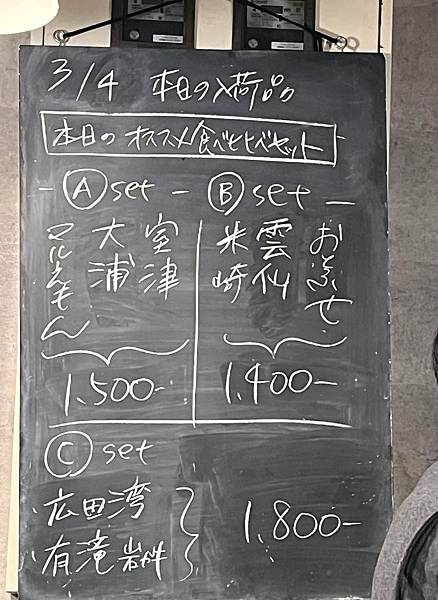 3/4 本日の入荷品
本日の オススメ食べ比べセット
Ⓐ set
室津
大浦
マルえもん
1,500-
Ⓑ set
おとふせ
雲仙
米崎
1,400-
Ⓒ set
広田湾
有滝
1,800-